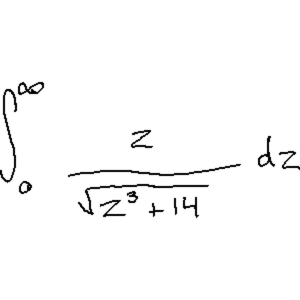 ∫₀^∞ z / √(z³ + 14) dz